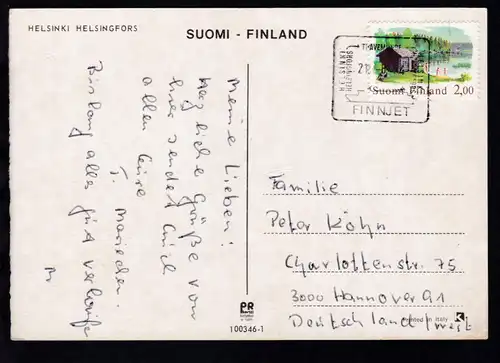 HELSINKI HELSINGFORS
SUOMI - FINLAND
TRAVEMÜNDE
HELSINKI
HELSINGFORS
FINNJET
Suomi Finland 2,00
Meine Lieben!
Herzliche Grüße von
hier sendet Euch
allen Eure
Mariechen.
Bislang alles gut verlaufen
Familie
Peter Köhn
Charlottenstr. 75
3000 Hannover 91
Deutschland West
PR
100346-1
Printed in Italy
K